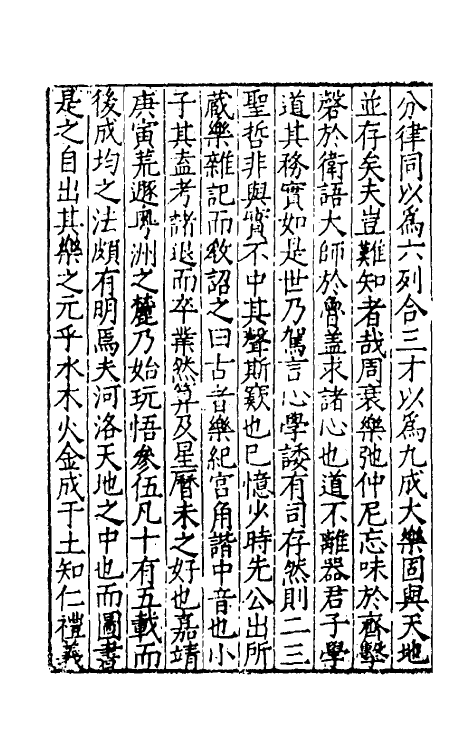 分律同以為六列合三才以為九成大樂固與天地
並存矣夫豈難知者哉周衰樂弛仲尼忘味於齊擊
磬於衛語大師於魯蓋求諸心也道不離器君子學
道其務實如是世乃駕言心學諉有司存然則二三
聖哲非與實不中其聲斯竅也已憶少時先公出所
蔵樂雜記而敎詔之曰古音樂紀宮角諧中音也小
子其盍考諸退而卒業然筭及星曆未之好也嘉靖
庚寅荒遯粤洲之麓乃始玩悟參伍凡十有五載而
後成均之法頗有明焉夫河洛天地之中也而圖書
是之自出其樂之元乎水木火金成于土知仁禮義